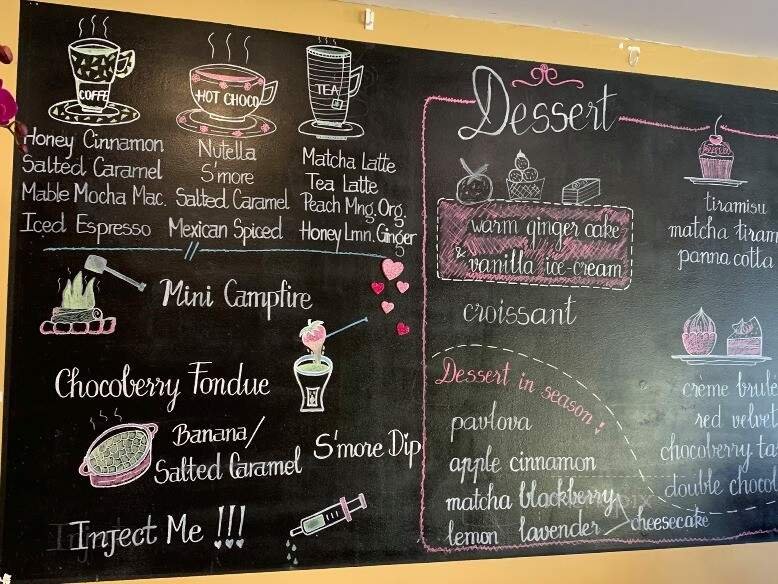 COFFE
Honey Cinnamon
Salted Caramel
Mable Mocha Mac.
Iced Espresso
HOT CHOCO
Nutella
S'more
Salted Caramel
Mexican Spiced
TEA
Matcha Latte
Tea Latte
Peach Mng. Org.
Honey Lmn. Ginger
Mini Campfire
Chocoberry Fondue
Banana/
Salted Caramel
S'more Dip
Inject Me !!!
Dessert
warm ginger cake
& vanilla ice-cream
croissant
Dessert in season!
pavlova
apple cinnamon
matcha blackberry
lemon lavender
cheesecake
tiramisu
matcha tiram
panna cotta
crème brulé
red velvet
chocoberry ta
double chocol